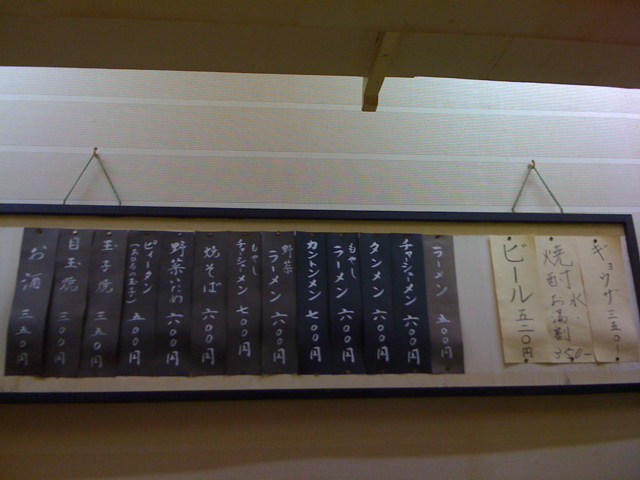 ギョウザ 三五〇
焼酎 水・お湯割 350-
ビール 五二〇円
ラーメン 五〇〇円
チャーシューメン 六〇〇円
タンメン 六〇〇円
もやしラーメン 六〇〇円
カントンメン 七〇〇円
野菜ラーメン 六〇〇円
もやしチャーシューメン 七〇〇円
焼そば 六〇〇円
野菜いため 六〇〇円
ピィータン 五〇〇円
玉子焼 三五〇円
目玉焼 三〇〇円
お酒 三五〇円